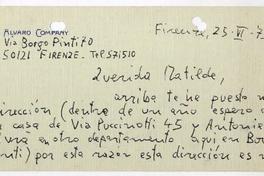 ALVARO COMPANY
Via Borgo Pinti 70
50121 FIRENZE. Tel 571510
Firenze, 25 VI
Querida Matilde,
arriba te he puesto
dirección (dentro de un año espero
casa de Via Puccinotti 45 y Antonie
ura en otro departamento aquí en Bor
nti) por esta razón esta dirección es